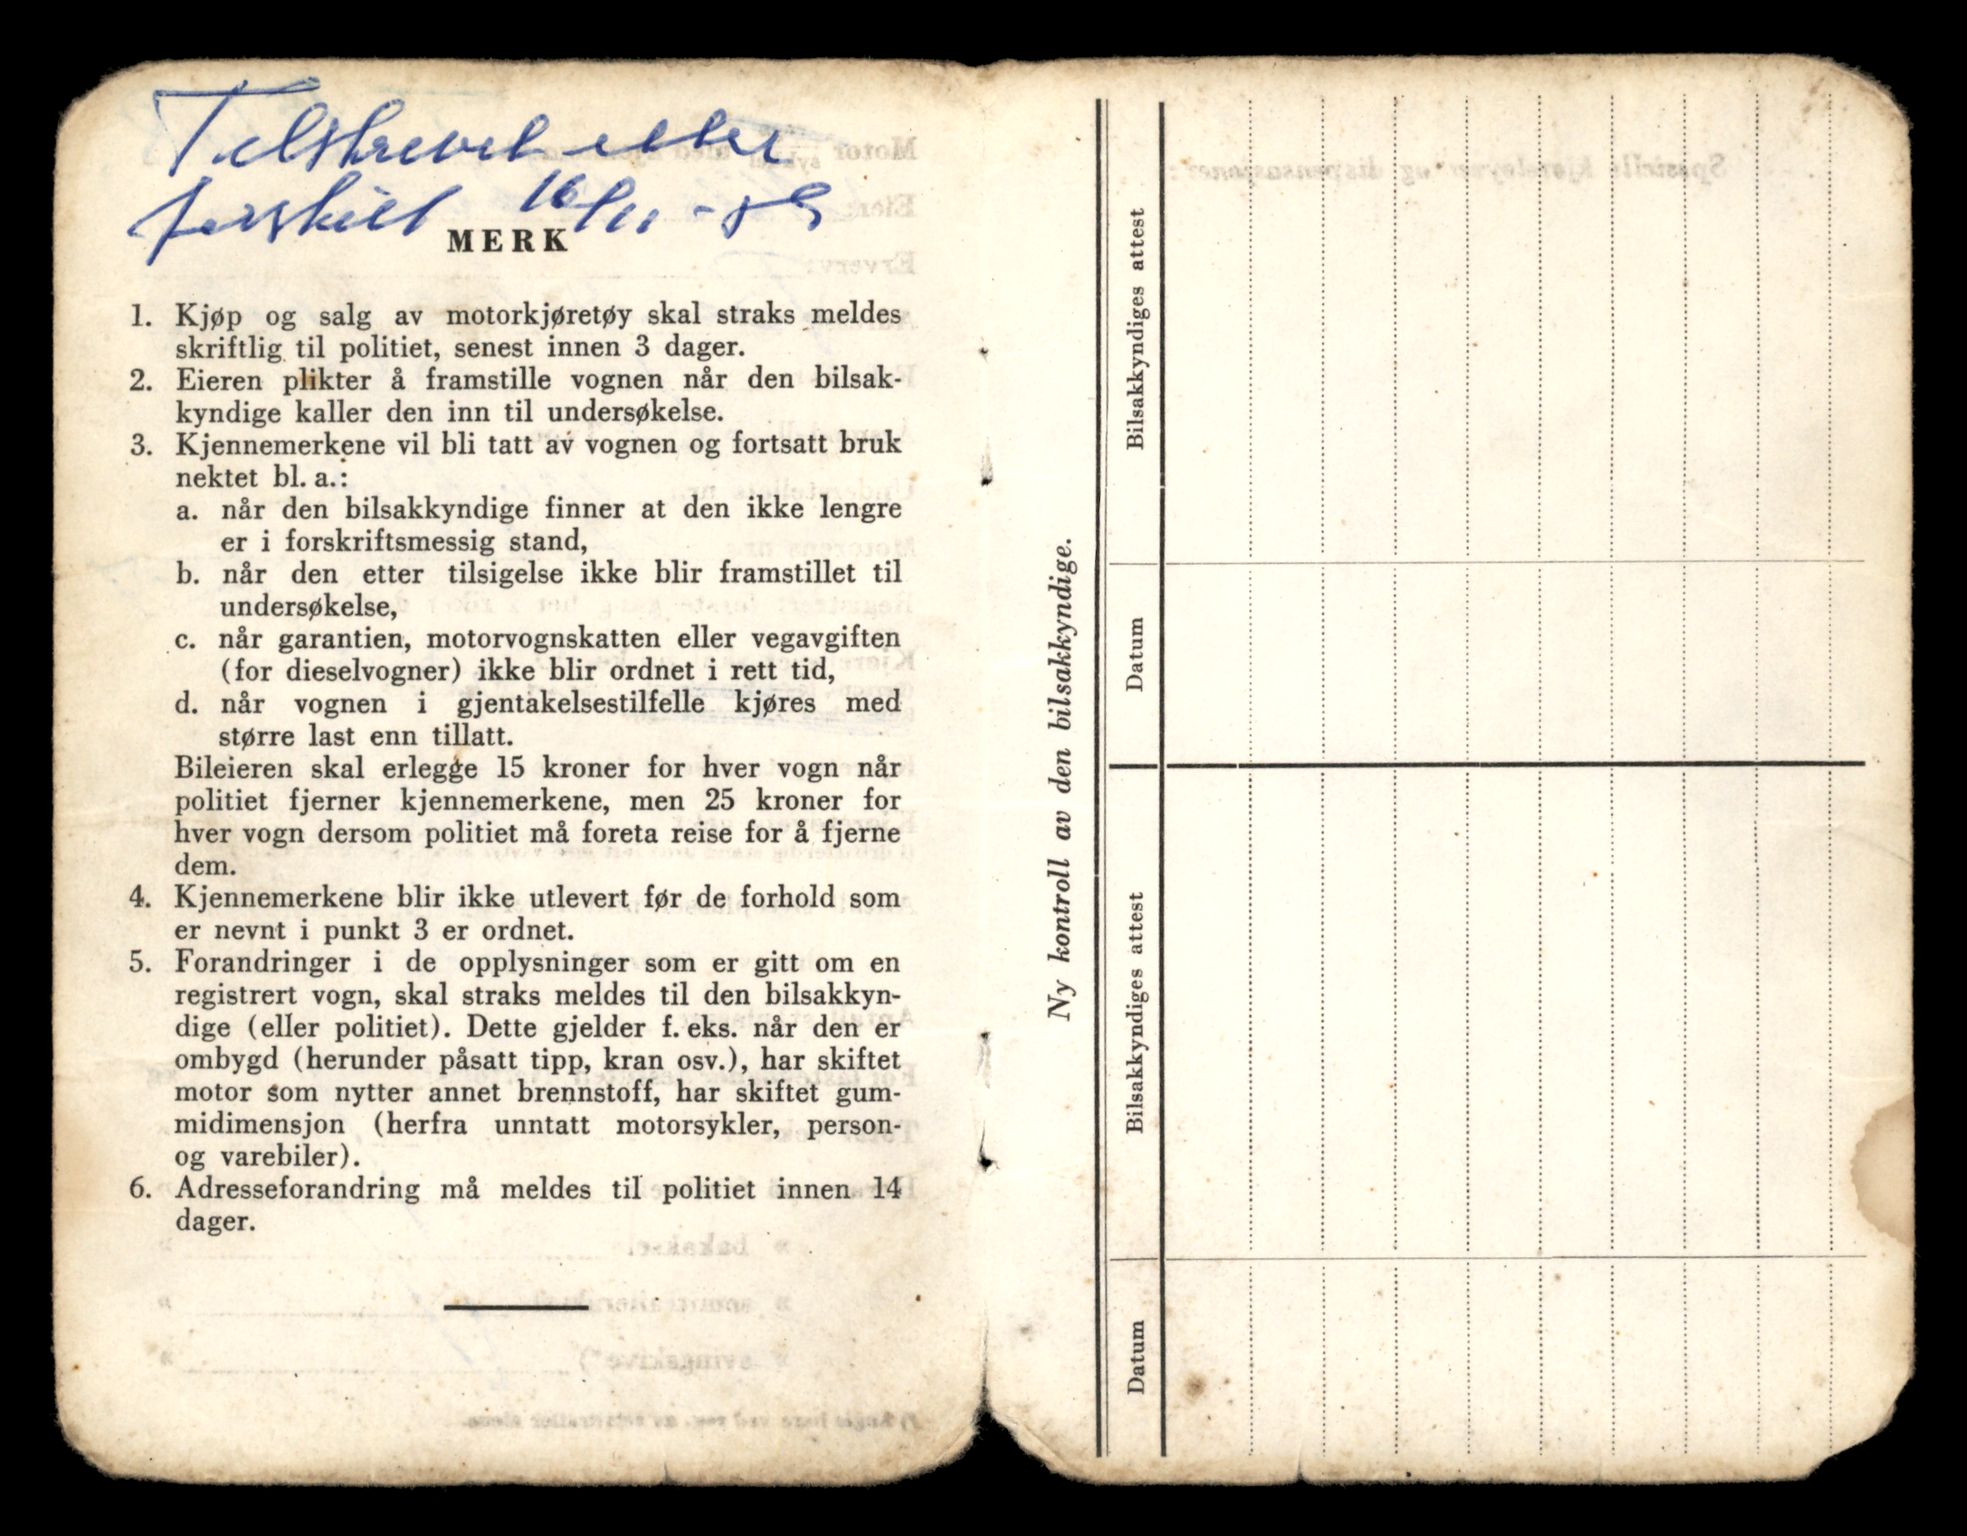 Tilskrevet eller
forskill 16/11 - 59
MERK
1. Kjøp og salg av motorkjøretøy skal straks meldes
skriftlig til politiet, senest innen 3 dager.
2. Eieren plikter å framstille vognen når den bilsak-
kyndige kaller den inn til undersøkelse.
3. Kjennemerkene vil bli tatt av vognen og fortsatt bruk
nektet bl. a.:
a. når den bilsakkyndige finner at den ikke lengre
er i forskriftsmessig stand,
b. når den etter tilsigelse ikke blir framstillet til
undersøkelse,
c. når garantien, motorvognskatten eller vegavgiften
(for dieselvogner) ikke blir ordnet i rett tid,
d. når vognen i gjentakelsestilfelle kjøres med
større last enn tillatt.
Bileieren skal erlegge 15 kroner for hver vogn når
politiet fjerner kjennemerkene, men 25 kroner for
hver vogn dersom politiet må foreta reise for å fjerne
dem.
4. Kjennemerkene blir ikke utlevert før de forhold som
er nevnt i punkt 3 er ordnet.
5. Forandringer i de opplysninger som er gitt om en
registrert vogn, skal straks meldes til den bilsakkyn-
dige (eller politiet). Dette gjelder f. eks. når den er
ombygd (herunder påsatt tipp, kran osv.), har skiftet
motor som nytter annet brennstoff, har skiftet gum-
midimensjon (herfra unntatt motorsykler, person-
og varebiler).
6. Adresseforandring må meldes til politiet innen 14
dager.
Ny kontroll av den bilsakkyndige.
Datum
Bilsakkyndiges attest
Datum
Bilsakkyndiges attest